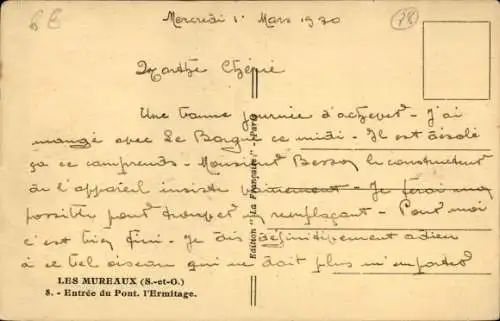 Mercredi 1 Mars 1930
78
Marthe Chérie
Une bonne journée d'achever - J'ai
mangé avec Le Borgne ce midi - Il est désolé
ça se comprends - Monsieur Besson le constructeur
de l'appareil insiste - Je ferai mon
possible pour trouver remplaçant - Pour moi
c'est bien fini - Je dis définitivement adieu
à ce bel oiseau qui ne doit plus m'emporter
Edition "La Française" - Paris
LES MUREAUX (S.-et-O.)
8. - Entrée du Pont. l'Ermitage.